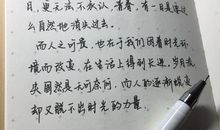 日,更无法不承认,青春,有一日是这
么自然地消失过去。
而人之可贵,也在于我们因着时光环
境而改变,在生活上得到长进。岁月流
失固然是无可奈何,而人的逐渐蜕变
却又脱不出时光的力量。